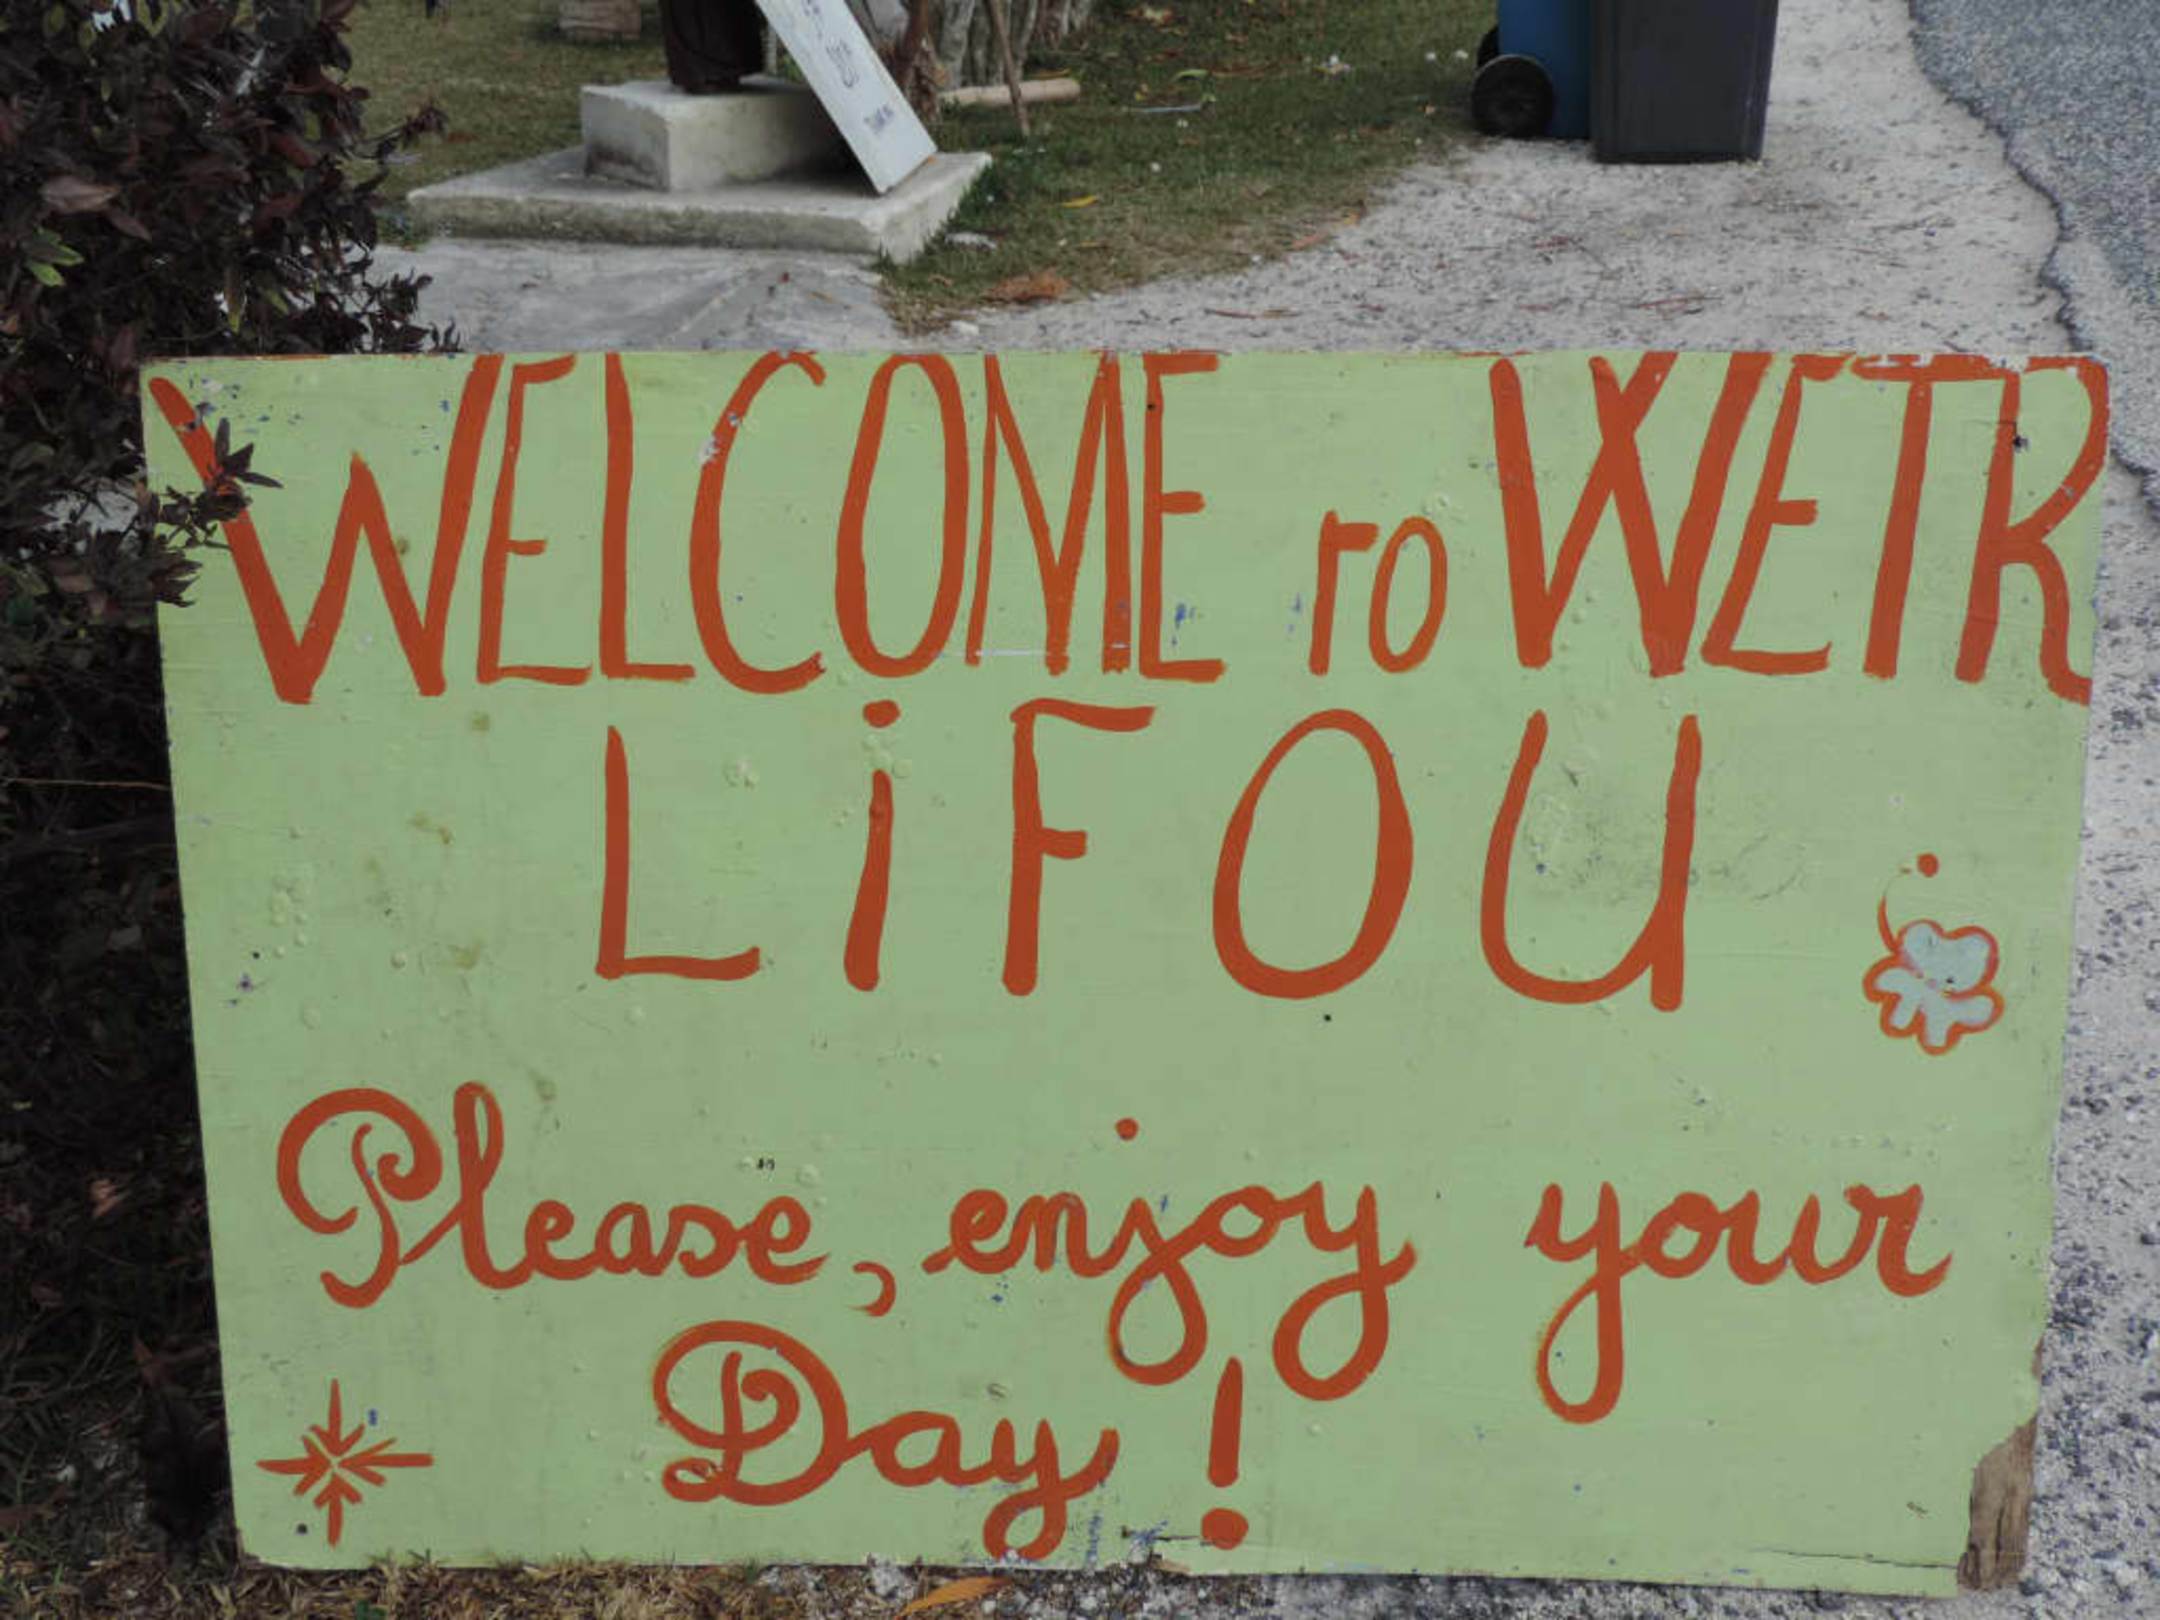 WELCOME TO WETR
LiFOU
Please, enjoy your
Day !